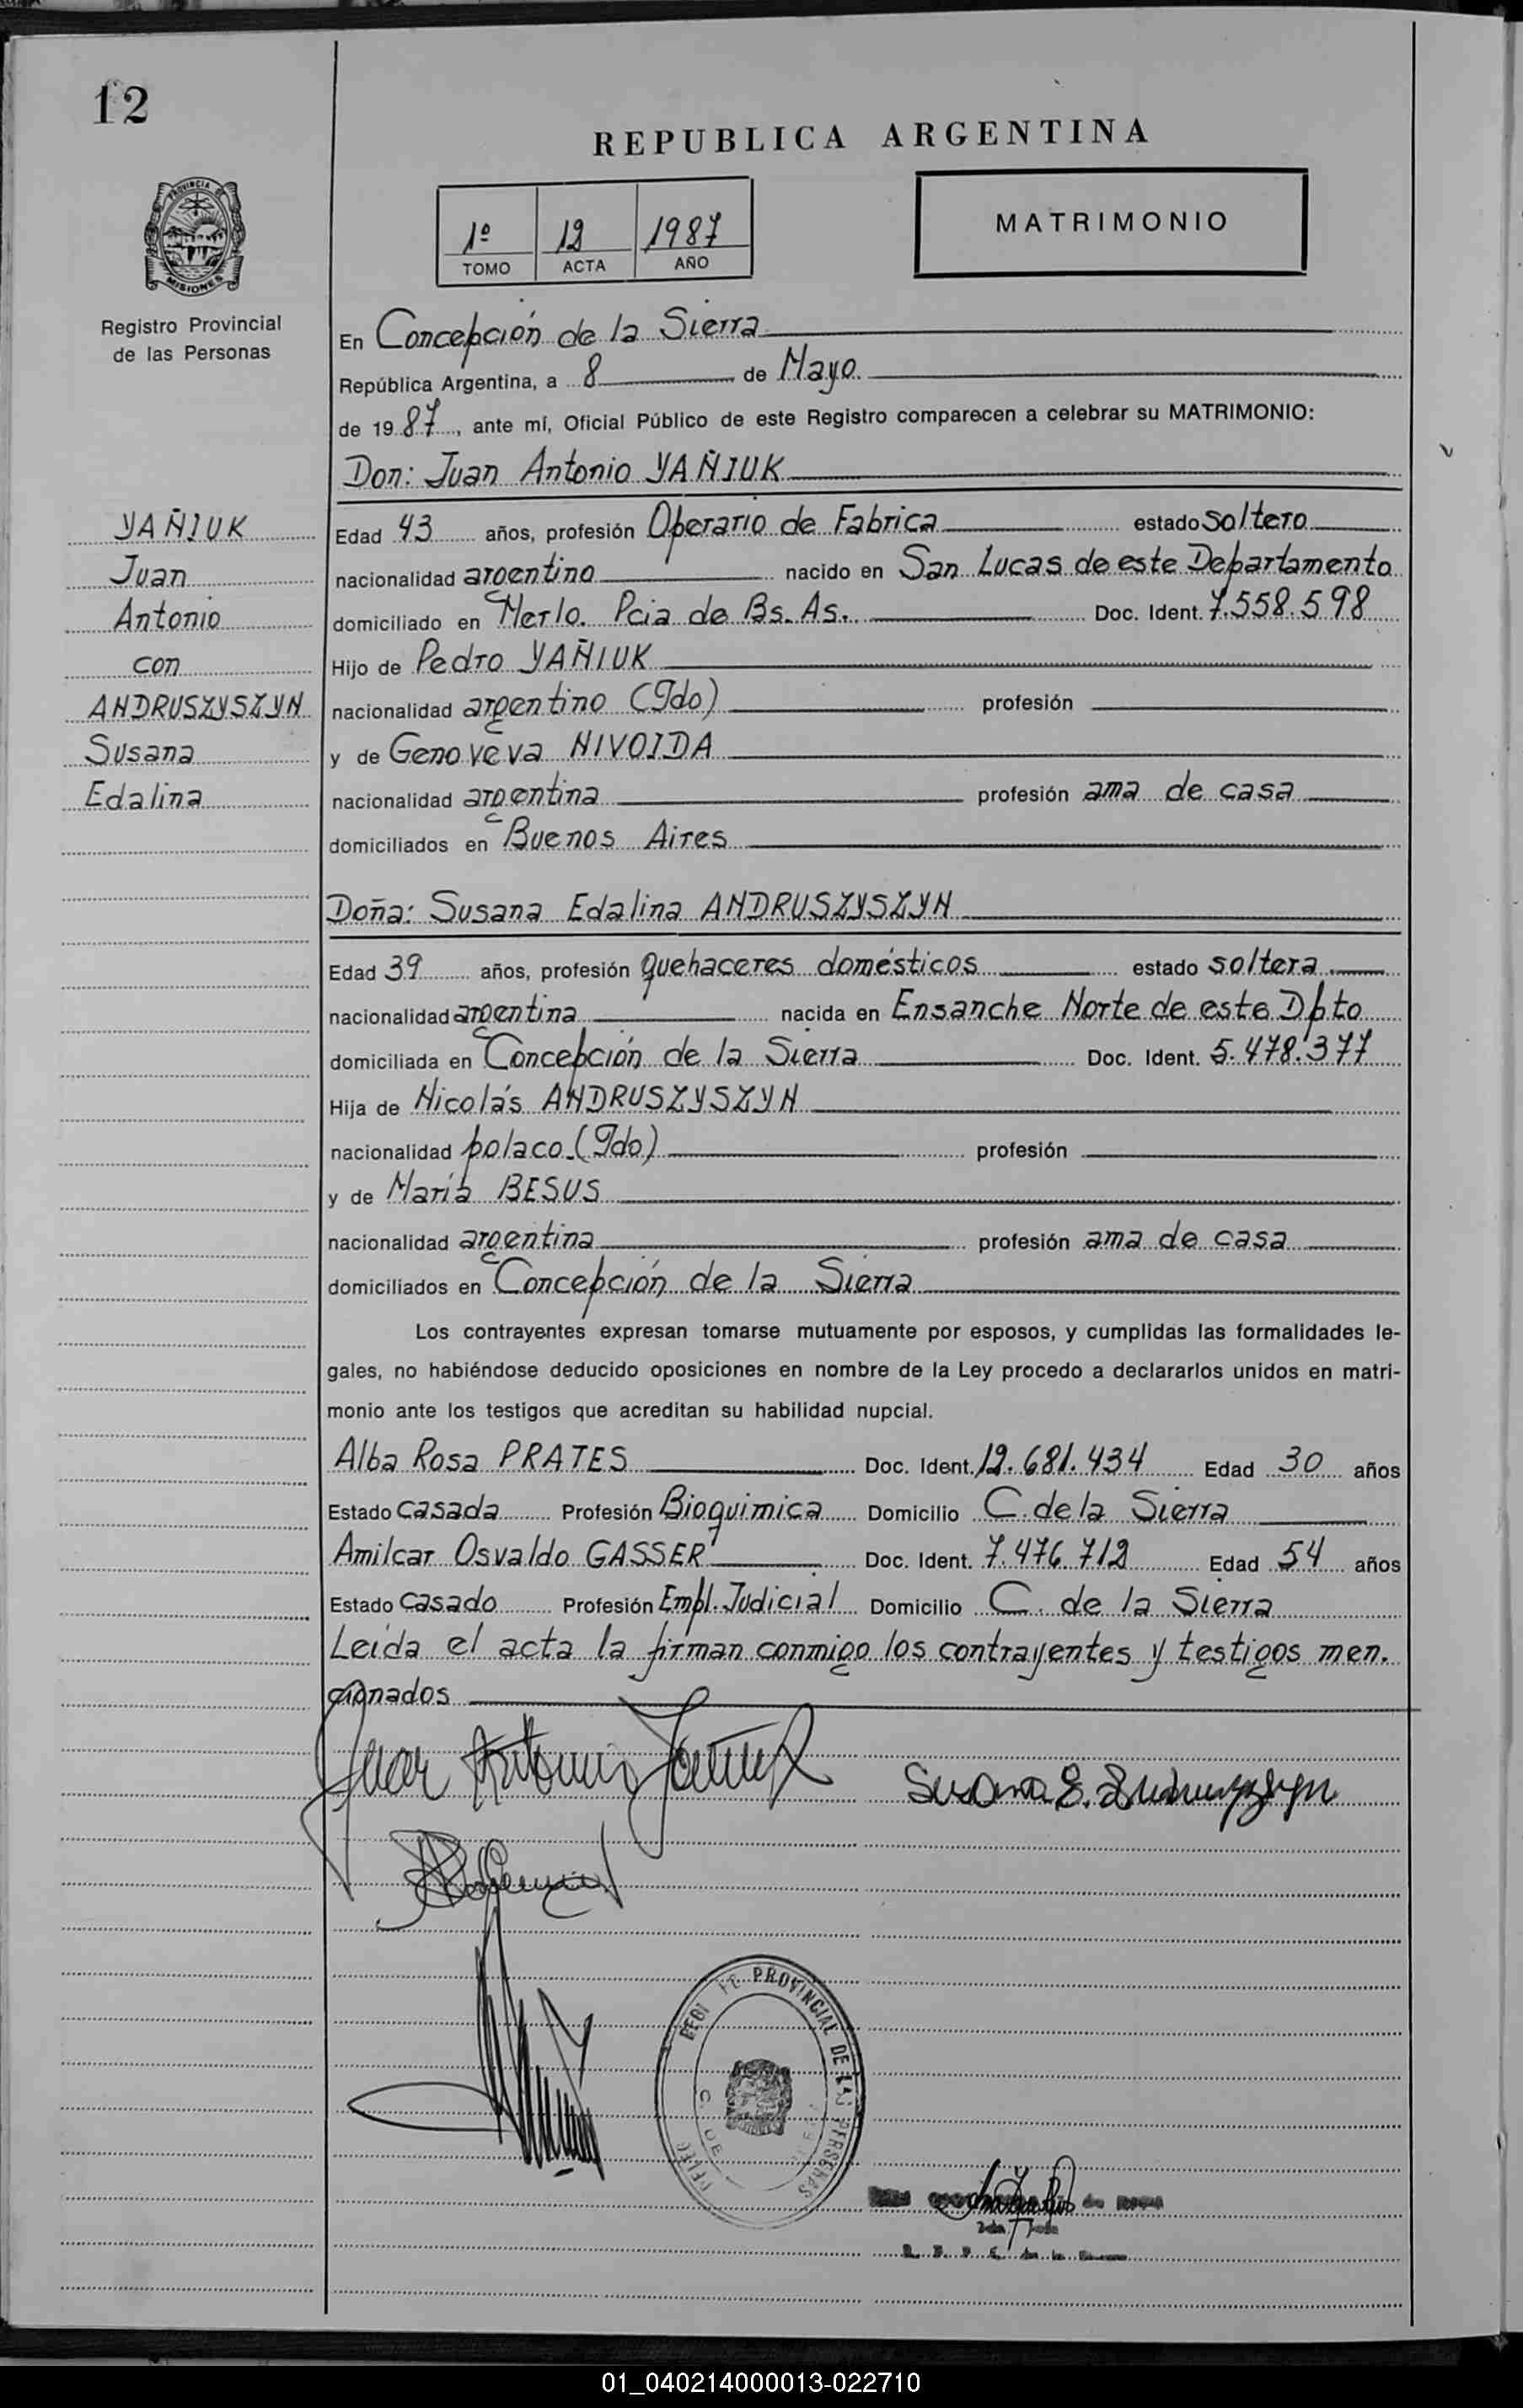 12
REPUBLICA ARGENTINA
PROVINCIA DE
MISIONES
Registro Provincial
de las Personas
1º 12 1987
TOMO ACTA AÑO
MATRIMONIO
En Concepción de la Sierra
República Argentina, a 8 de Mayo
de 1987, ante mí, Oficial Público de este Registro comparecen a celebrar su MATRIMONIO:
Don: Juan Antonio YAÑIUK
YAÑIUK
Juan
Antonio
con
ANDRUSZYSZYN
Susana
Edalina
Edad 43 años, profesión Operario de Fabrica estado soltero
nacionalidad argentino nacido en San Lucas de este Departamento
domiciliado en Merlo. Pcia de Bs. As. Doc. Ident. 7.558.598
Hijo de Pedro YAÑIUK
nacionalidad argentino (Fdo) profesión
y de Genoveva NIVOIDA
nacionalidad argentina profesión ama de casa
domiciliados en Buenos Aires
Doña: Susana Edalina ANDRUSZYSZYN
Edad 39 años, profesión quehaceres domésticos estado soltera
nacionalidad argentina nacida en Ensanche Norte de este Dpto
domiciliada en Concepción de la Sierra Doc. Ident. 5.478.377
Hija de Nicolás ANDRUSZYSZYN
nacionalidad polaco (Fdo) profesión
y de María BESUS
nacionalidad argentina profesión ama de casa
domiciliados en Concepción de la Sierra
Los contrayentes expresan tomarse mutuamente por esposos, y cumplidas las formalidades le-
gales, no habiéndose deducido oposiciones en nombre de la Ley procedo a declararlos unidos en matri-
monio ante los testigos que acreditan su habilidad nupcial.
Alba Rosa PRATES Doc. Ident. 12.681.434 Edad 30 años
Estado casada Profesión Bioquimica Domicilio C. de la Sierra
Amilcar Osvaldo GASSER Doc. Ident. 7.476.712 Edad 54 años
Estado casado Profesión Empl. Judicial Domicilio C. de la Sierra
Leída el acta la firman conmigo los contrayentes y testigos men.
cionados
Juan Antonio Yañiuk
Susana E. Andruszyszyn
PROVINCIAL DE LAS PERSONAS
01_040214000013-022710